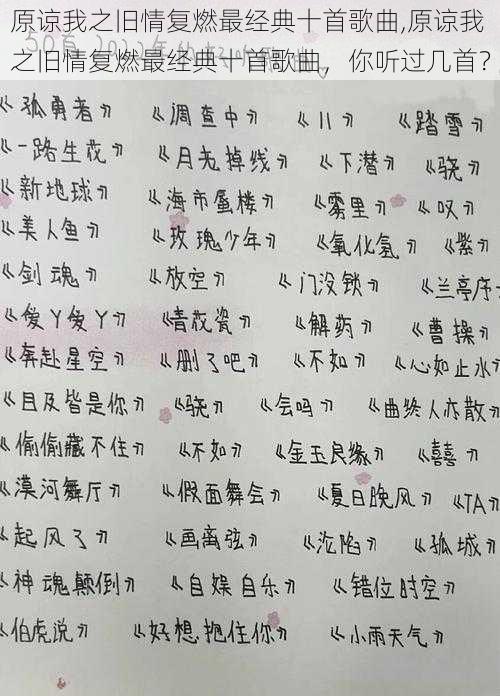 原谅我之旧情复燃最经典十首歌曲,原谅我
之旧情复燃最经典十首歌曲，你听过几首？
《孤勇者》 《调查中》 《11》 《踏雪》
《一路生花》 《月光掉线》 《下潜》 《骁》
《新地球》 《海市蜃楼》 《雾里》 《叹》
《美人鱼》 《玫瑰少年》 《氧化氢》 《紫》
《剑魂》 《放空》 《门没锁》 《兰亭序
《爱丫爱丫》 《青花瓷》 《解药》 《曹操》
《奔赴星空》 《删了吧》 《不如》 《心如止水》
《目及皆是你》 《骁》 《会吗》 《曲终人亦散》
《偷偷藏不住》 《不如》 《金玉良缘》 《囍》
《漠河舞厅》 《假面舞会》 《夏日晚风》 《TA》
《起风了》 《画离弦》 《沦陷》 《孤城》
《神魂颠倒》 《自娱自乐》 《错位时空》
《伯虎说》 《好想抱住你》 《小雨天气》